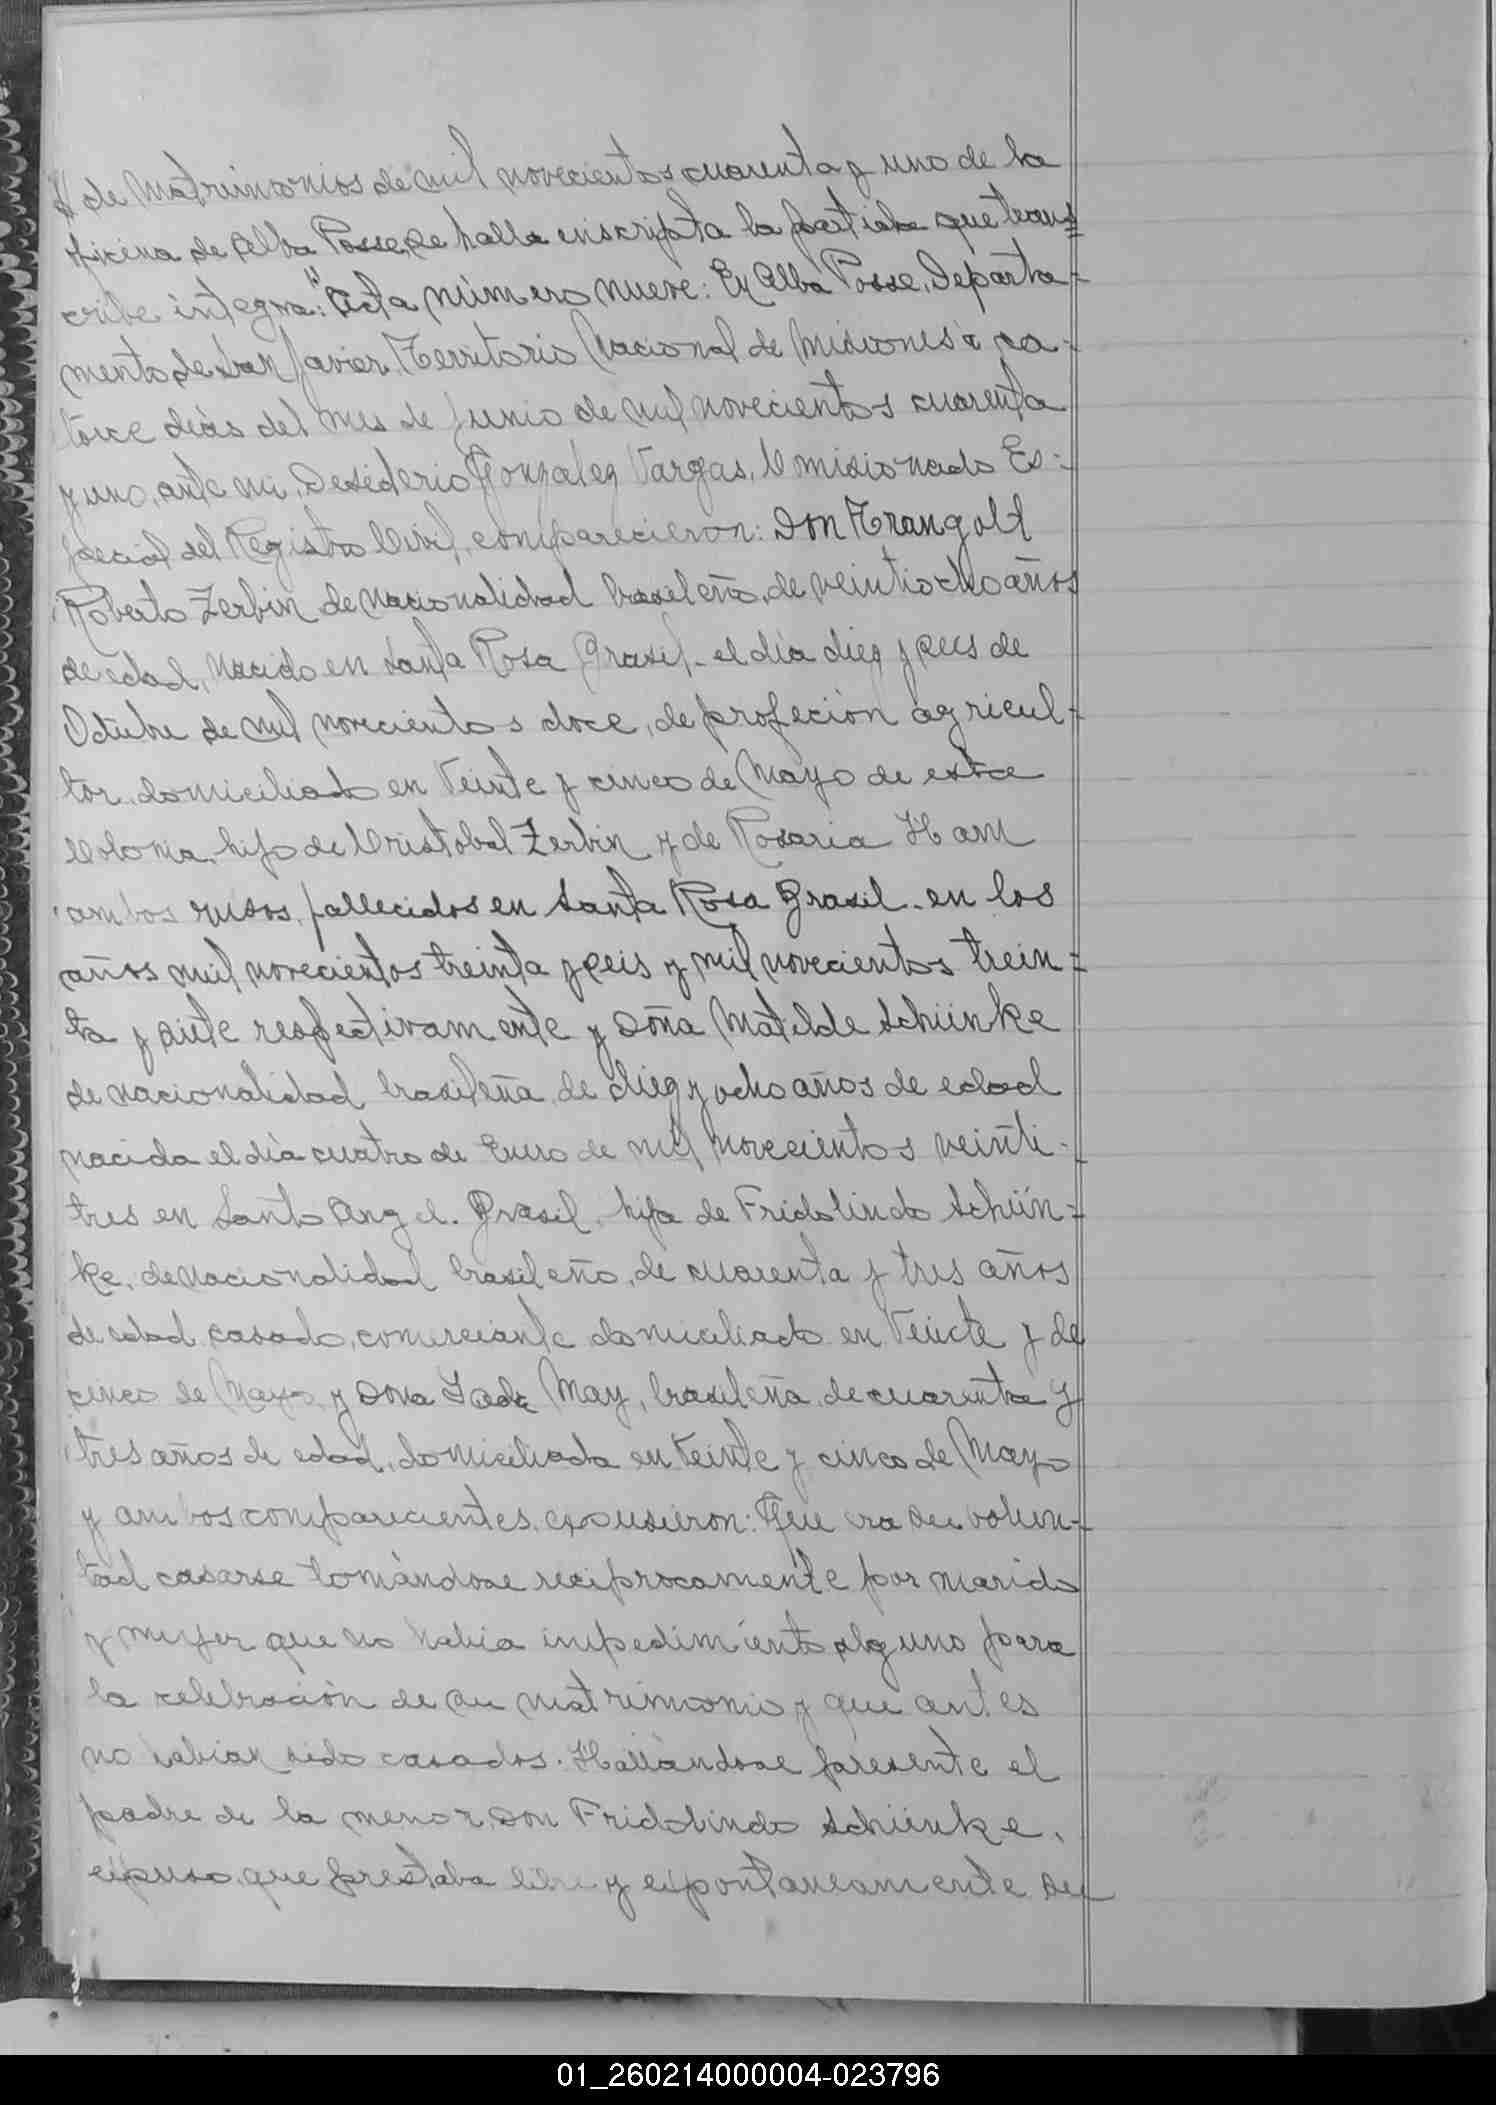 de Matrimonios de mil novecientos cuarenta y uno de la
oficina de Alba Posse, se halla inscripta la partida que trans=
cribe integra: "Acta número nueve: En Alba Posse, Departa=
mento de San Javier, Territorio Nacional de Misiones a ca-
torce dias del mes de Junio de mil novecientos cuarenta
y uno, ante mi, Desiderio Gonzalez Vargas, Comisionado Es-
pecial del Registro Civil, comparecieron: Don Trangolt
Roberto Zerbin de nacionalidad brasileño, de veintiocho años
de edad, nacido en Santa Rosa Brasil- el día diez y seis de
Octubre de mil novecientos doce, de profeción agricul-
tor, domiciliado en Veinte y cinco de Mayo de esta
Colonia, hijo de Cristobal Zerbin y de Rosaria Ham
ambos rusos, fallecidos en Santa Rosa Brasil- en los
años mil novecientos treinta y seis y mil novecientos trein=
ta y siete respectivamente y Doña Matilde Schünke
de nacionalidad brasileña, de diez y ocho años de edad
nacida el día cuatro de Enero de mil novecientos veinti-
tres en Santo Angel. Brasil, hija de Fridolindo Schün=
ke, de nacionalidad brasileño, de cuarenta y tres años
de edad, casado, comerciante domiciliado en Veinte y de
cinco de Mayo, y Dona May, brasileña, de cuarenta y
tres años de edad, domiciliada en Veinte y cinco de Mayo
y ambos comparecientes, expusieron: Que era su volun-
tad casarse tomándose reciprocamente por marido
y mujer que no habia impedimento alguno para
la celebración de su matrimonio y que antes
no habian sido casados. Hallándose presente el
padre de la menor, Don Fridolindo Schünke,
expuso, que prestaba libre y espontaneamente su
01_260214000004-023796